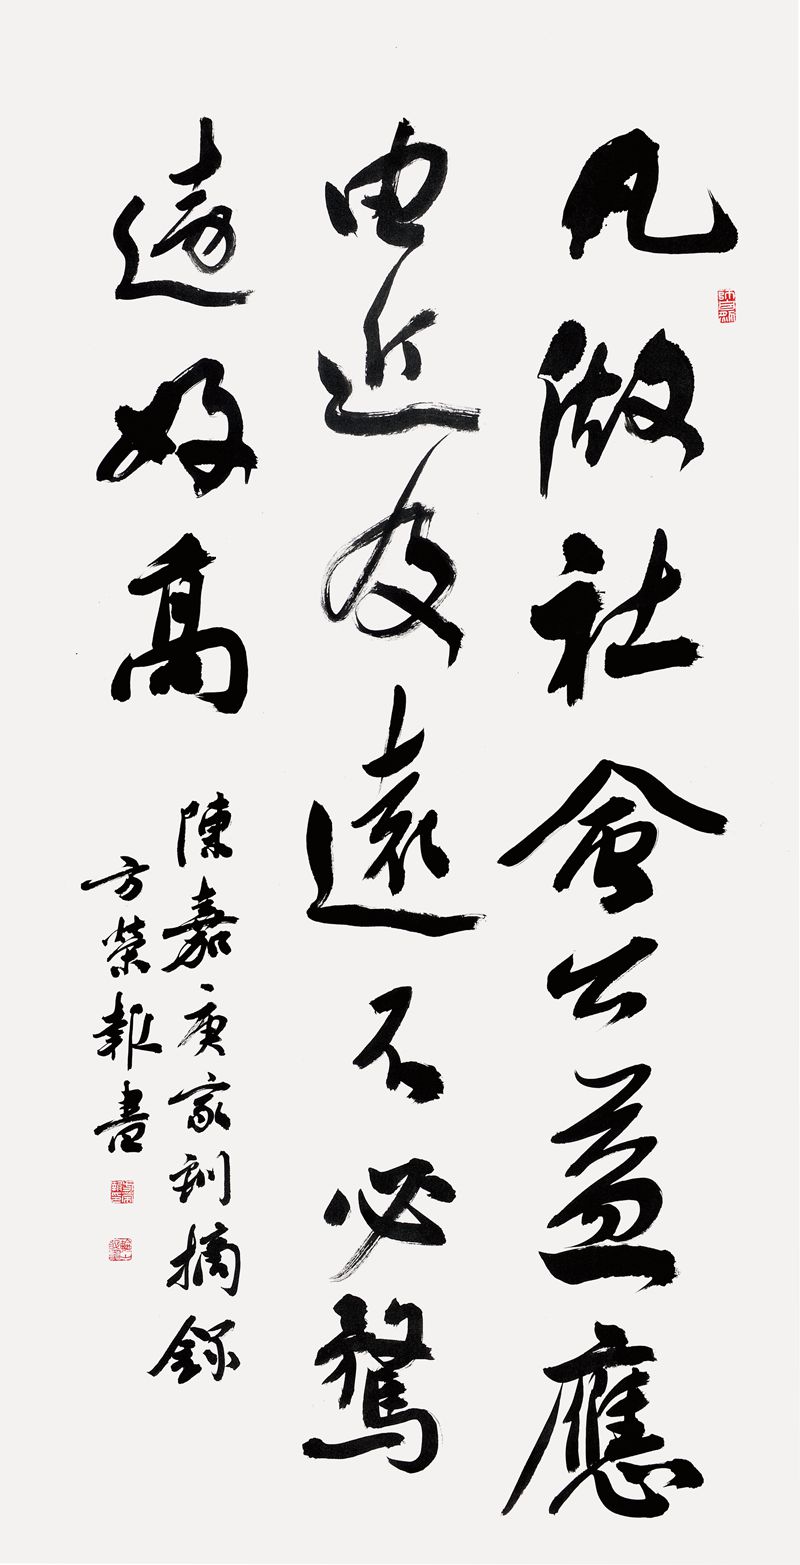 凡做社會公益應
由近及遠不必騖
遠好高
陳嘉庚家訓摘錄
方榮報書